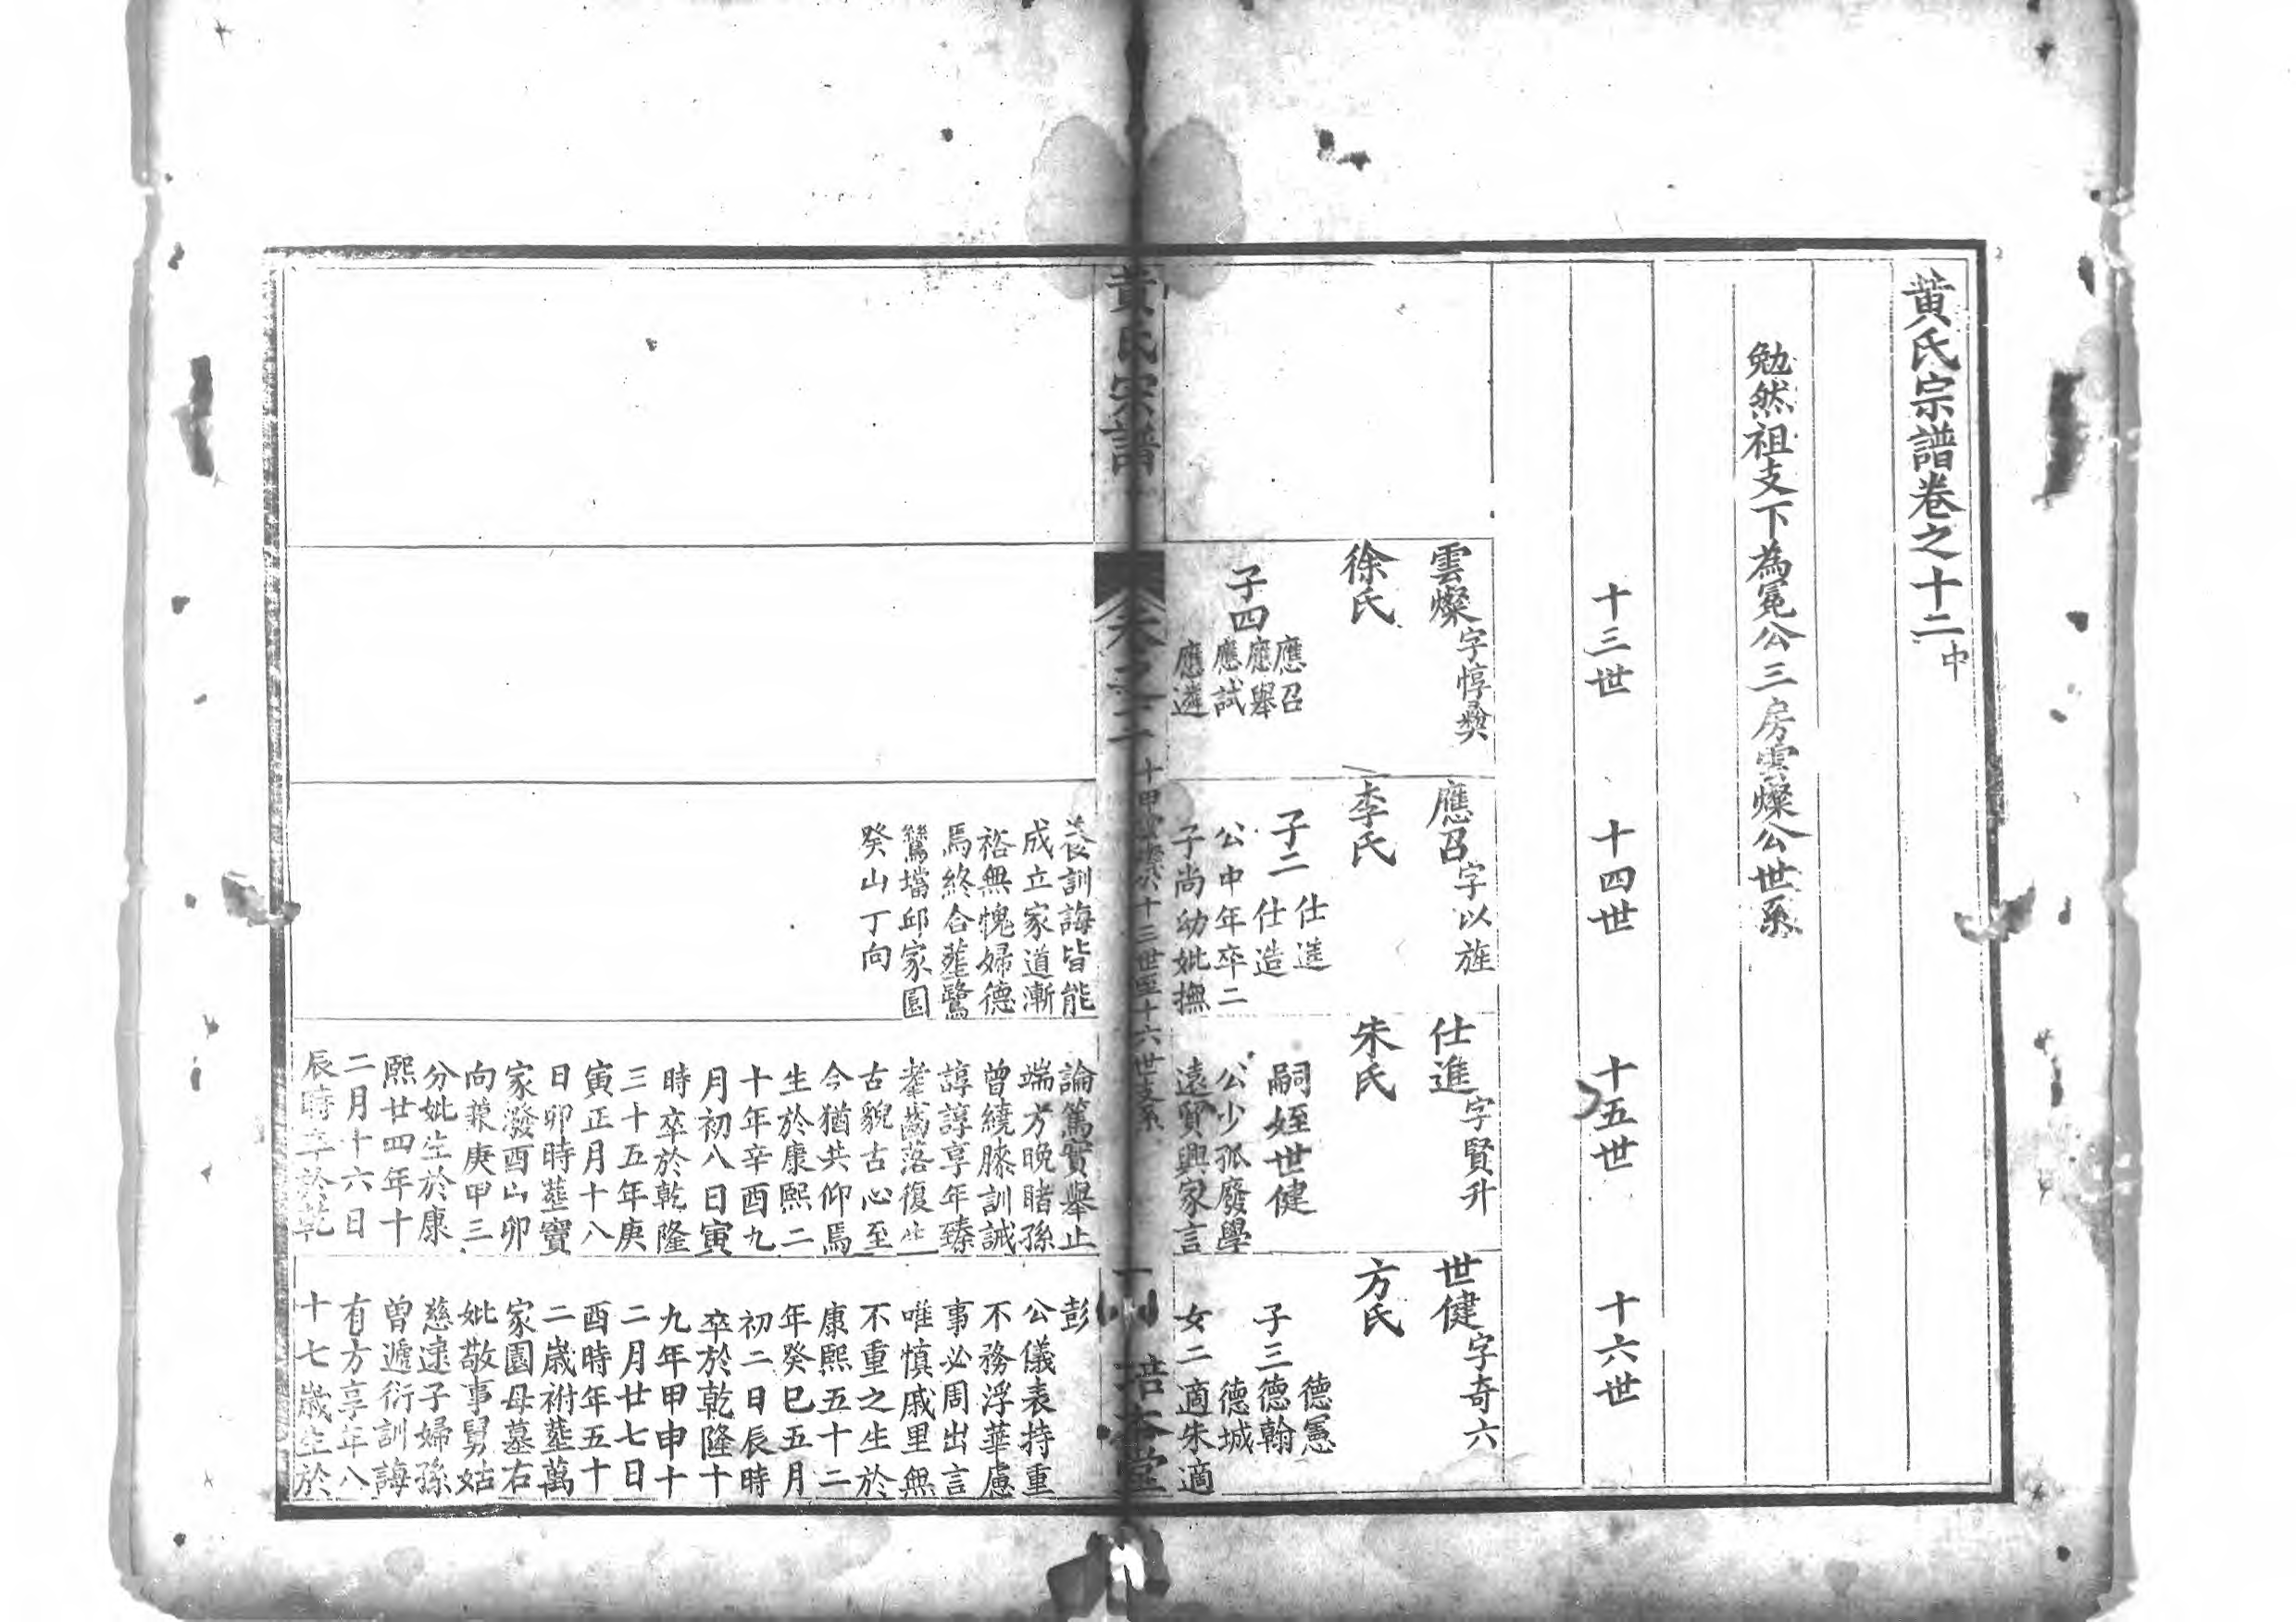 黄氏宗譜卷之十二中
勉然祖支下為冕公三房雲燦公世系
十三世
十四世
十五世
十六世
雲燦字惇彝
徐氏
子四
應召
應舉
應試
應遴
應召字以旌
李氏
子二
仕進
仕造
公中年卒二
子尚幼妣撫
仕進字賢升
朱氏
嗣姪世健
公少孤廢學
遠賀興家言
世健字奇六
方氏
子三
德憲
德翰
德城
女二適朱適
黄氏宗譜
卷之十二
十三世至十六世支系
一
培本堂
養訓誨皆能
成立家道漸
裕無愧婦德
焉終合塟鷺
鷥壋邱家園
癸山丁向
論篤實舉止
端方晚睹孫
曾繞膝訓誡
諄諄享年臻
耋齒落復生
古貌古心至
今猶共仰焉
生於康熙二
十年辛酉九
月初八日寅
時卒於乾隆
三十五年庚
寅正月十八
日卯時塟竇
家潑酉山卯
向兼庚甲三
分妣生於康
熙廿四年十
二月十六日
辰時卒於乾
彭
公儀表持重
不務浮華慮
事必周出言
唯慎戚里無
不重之生於
康熙五十二
年癸巳五月
初二日辰時
卒於乾隆十
九年甲申十
二月廿七日
酉時年五十
二歲祔塟萬
家園母墓右
妣敬事舅姑
慈逮子婦孫
曾遞衍訓誨
有方享年八
十七歲生於